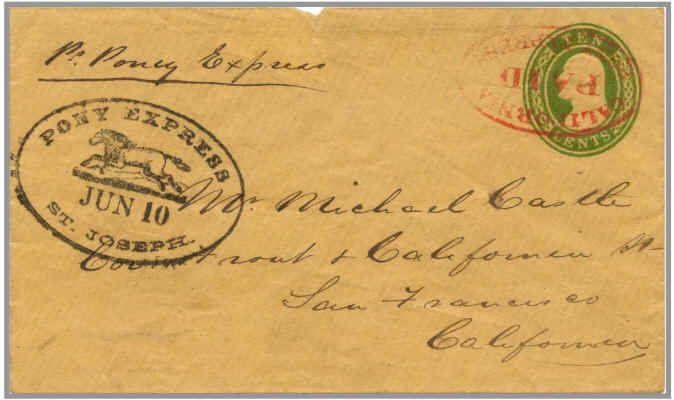 Pr. Poney Express
TEN
CENTS
CALIFORNIA
PAID
PONY EXPRESS
JUN 10
ST. JOSEPH.
Mr. Michael Castle
Cor. Front & California St
San Francisco
California